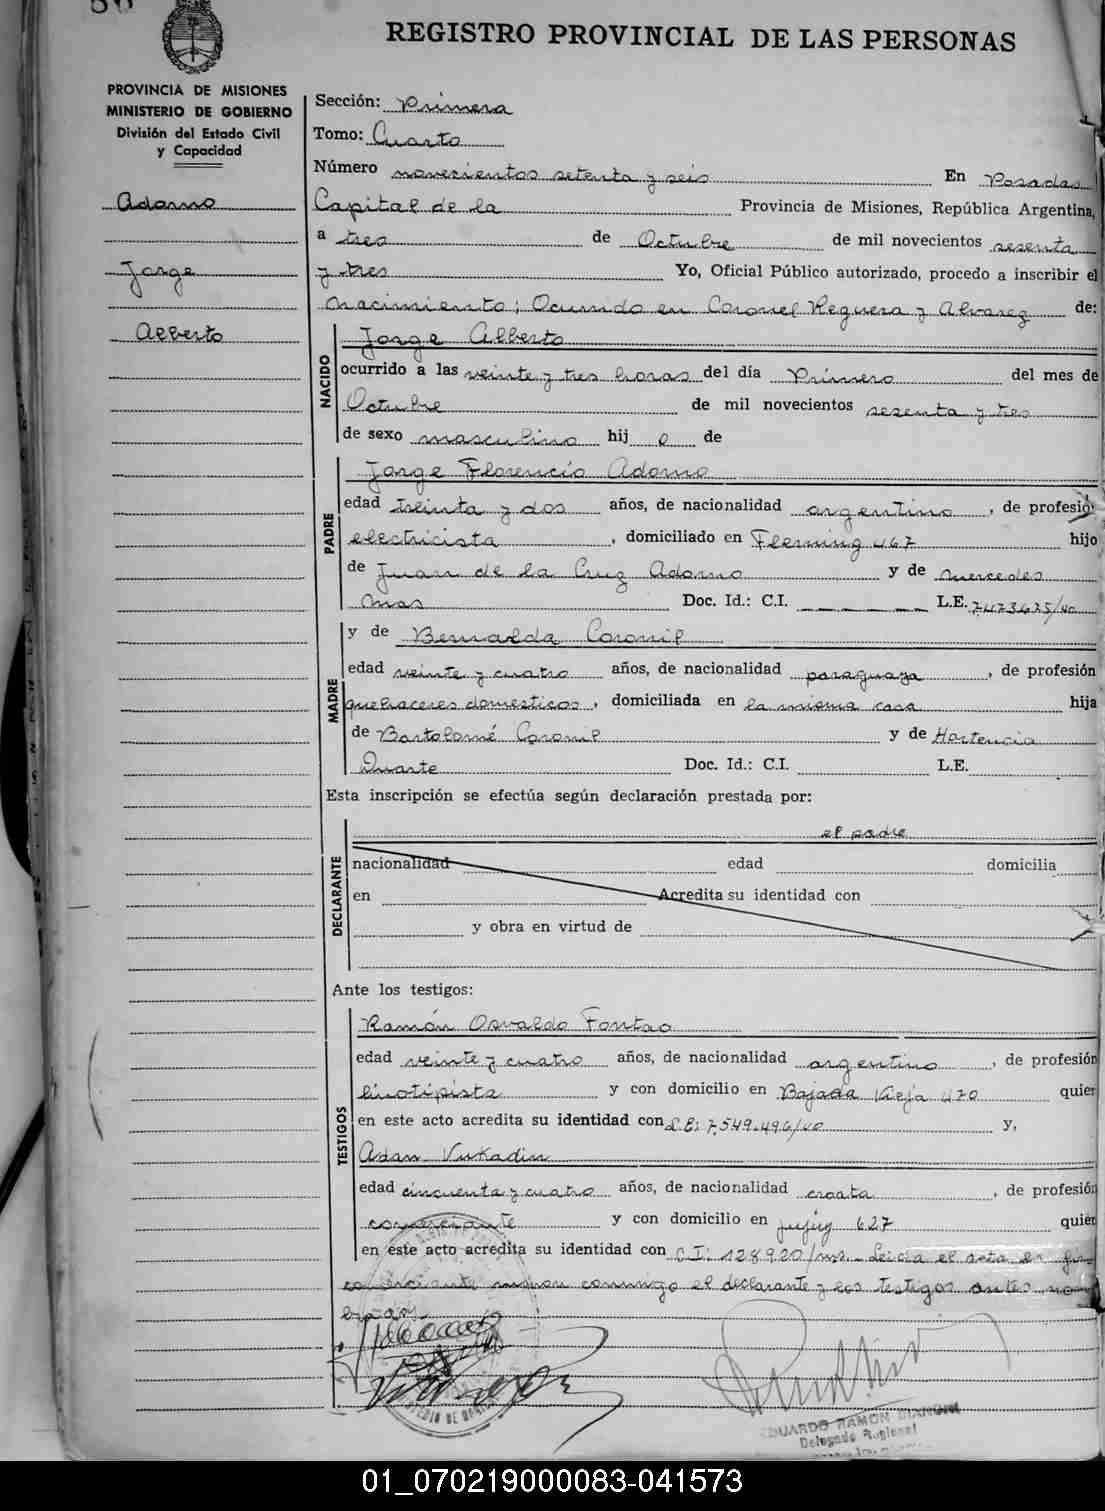 REGISTRO PROVINCIAL DE LAS PERSONAS
PROVINCIA DE MISIONES
MINISTERIO DE GOBIERNO
División del Estado Civil
y Capacidad
Adorno
Jorge
Alberto
Sección: Primera
Tomo: Cuarto
Número novecientos setenta y seis En Posadas
Capital de la Provincia de Misiones, República Argentina,
a tres de Octubre de mil novecientos sesenta
y tres Yo, Oficial Público autorizado, procedo a inscribir el
nacimiento; Ocurrido en Coronel Reguera y Alvarez de:
NACIDO
Jorge Alberto
ocurrido a las veinte y tres horas del día Primero del mes de
Octubre de mil novecientos sesenta y tres
de sexo masculino hij o de
PADRE
Jorge Florencio Adorno
edad treinta y dos años, de nacionalidad argentino, de profesión
electricista, domiciliado en Fleming 467 hijo
de Juan de la Cruz Adorno y de Mercedes
Mas Doc. Id.: C.I. L.E. 7473635/40
MADRE
y de Bernalda Coronil
edad veinte y cuatro años, de nacionalidad paraguaya, de profesión
quehaceres domesticos, domiciliada en la misma casa hija
de Bartolomé Coronil y de Hortencia
Duarte Doc. Id.: C.I. L.E.
Esta inscripción se efectúa según declaración prestada por:
DECLARANTE
el padre
nacionalidad edad domicilia
en Acredita su identidad con
y obra en virtud de
Ante los testigos:
TESTIGOS
Ramón Osvaldo Fontao
edad veinte y cuatro años, de nacionalidad argentino, de profesión
linotipista y con domicilio en Bajada Vieja 470 quier
en este acto acredita su identidad con L.E: 7.549.496/40 y,
Adan Vukadin
edad cincuenta y cuatro años, de nacionalidad croata, de profesión
comerciante y con domicilio en Jujuy 627 quier
en este acto acredita su identidad con C.I: 128.920/ms. Leida el acta
conmigo el declarante y los testigos antes
EDUARDO RAMON
Delegado Regional
01_070219000083-041573